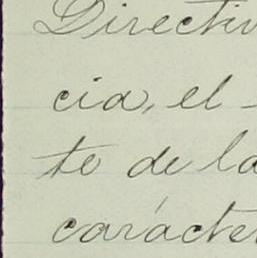 Directiv
cia, el
te de la
carácter